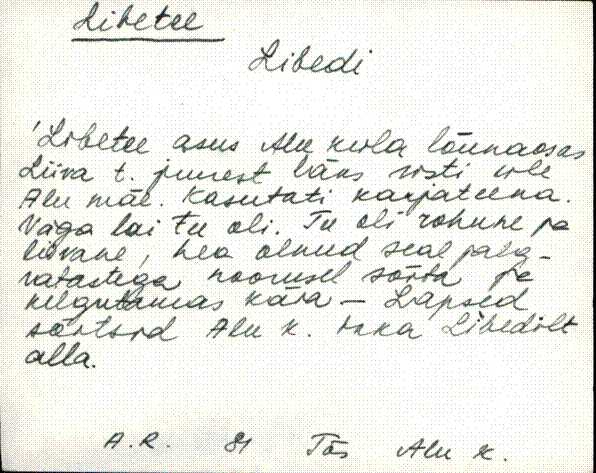 Libetee
Libedi
'Libetee asus Alu küla lõunaosas
Liiva t. juurest läks risti üle
Alu mäe. Kasutati karjateena.
Väga lai tee oli. Tee oli rohune ja
liivane, hea olnud seal jalg-
ratastega noorusel sõita ja
kelgutamas käia - Lapsed
sõitsid Alu k. takka Libedilt
alla.
A.R. 81 Tõs Alu k.